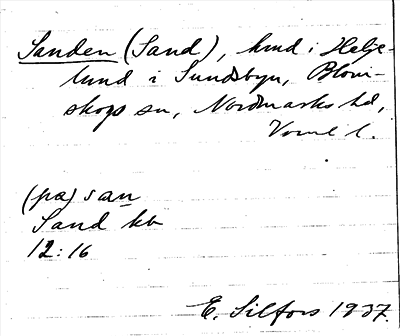 Sanden (Sand), hmd i Helge-
lund i Sundsbyn, Blom-
skogs sn, Nordmarks hd,
Värml l.
(pa) san
Sand kb
12:16
E. Silfors 1937.